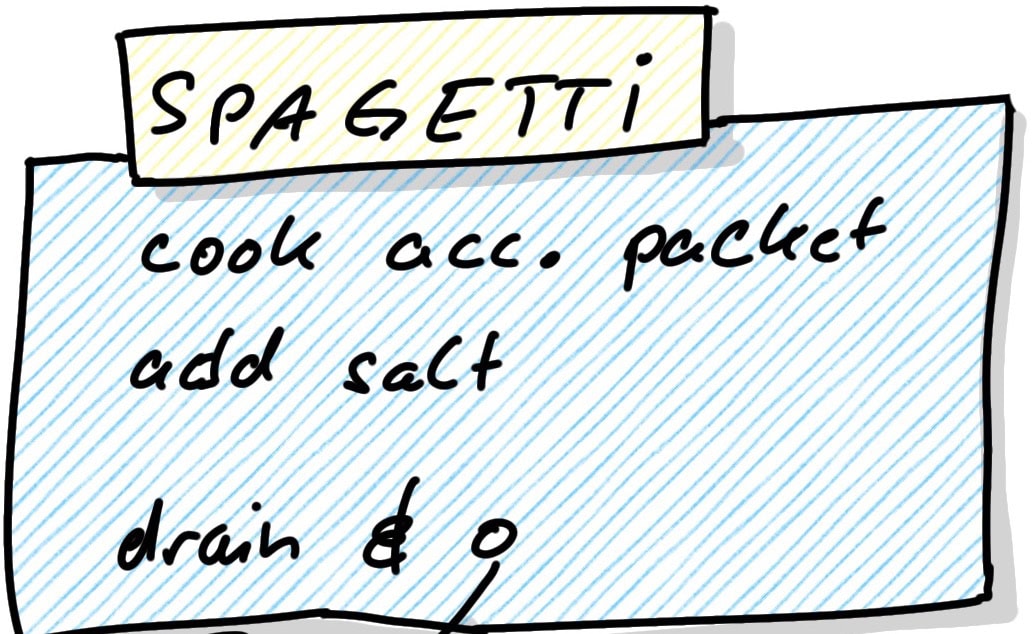 SPAGETTi
cook acc. packet
add salt
drain &